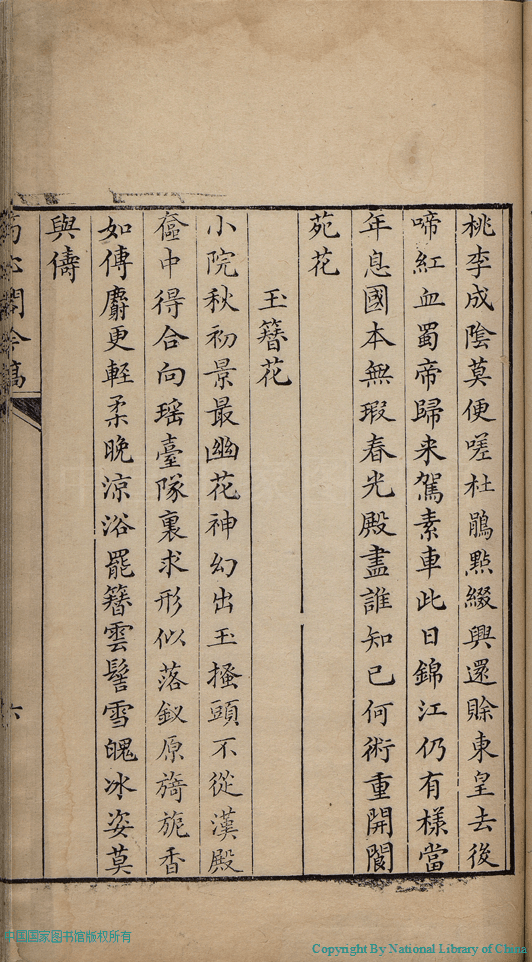 桃李成陰莫便嗟杜鵑點綴興還賒東皇去後
啼紅血蜀帝歸来駕素車此日錦江仍有様當
年息國本無瑕春光殿盡誰知己何術重開閬
苑花
玉簪花
小院秋初景最幽花神幻出玉搔頭不從漢殿
奩中得合向瑶臺隊裏求形似落釵原旖旎香
如傅麝更輕柔晚涼浴罷簪雲髻雪魄冰姿莫
與儔
六
中国国家图书馆版权所有
Copyright By National Library of China